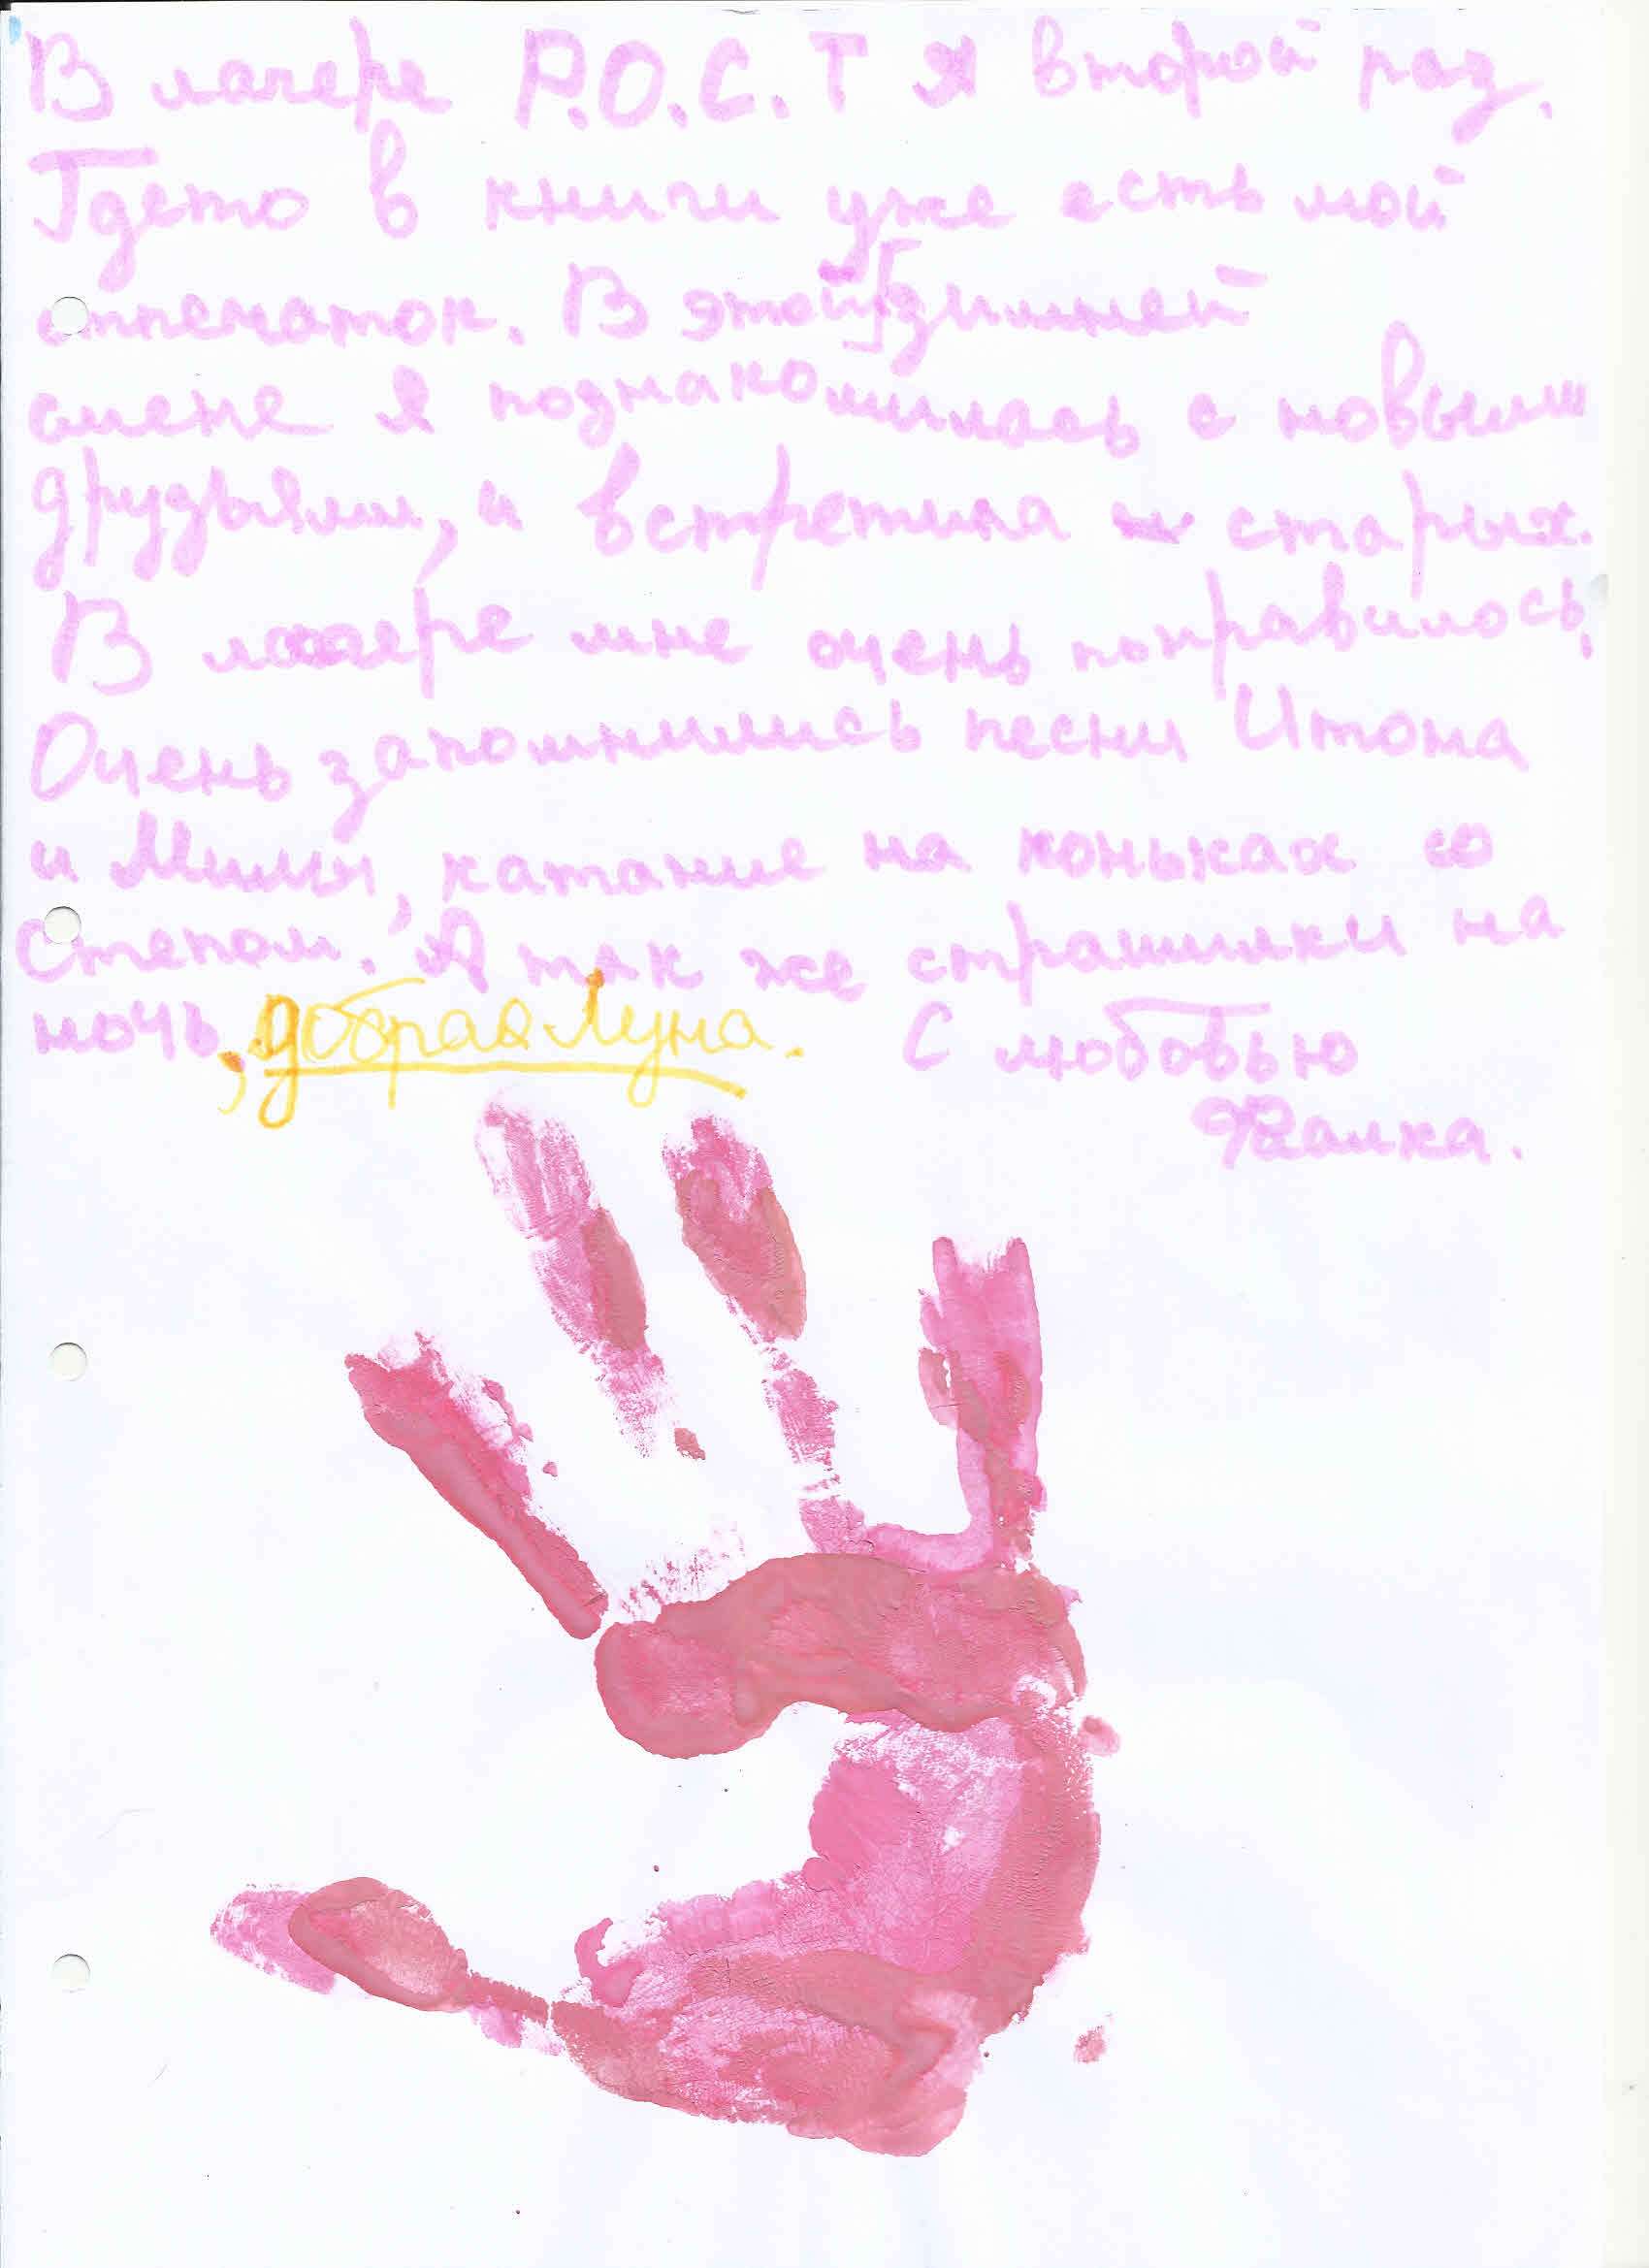 В лагере Р.О.С.Т я второй раз.
Гдето в книги уже есть мой
отпечаток. В этой зимней
смене я познакомилась с новыми
друзьями, и встретила старых.
В лагере мне очень понравилось.
Очень запомнились песни Итона
и Милы, катание на коньках со
Степом. А так же страшилки на
ночь, добрая Луна. С любовью